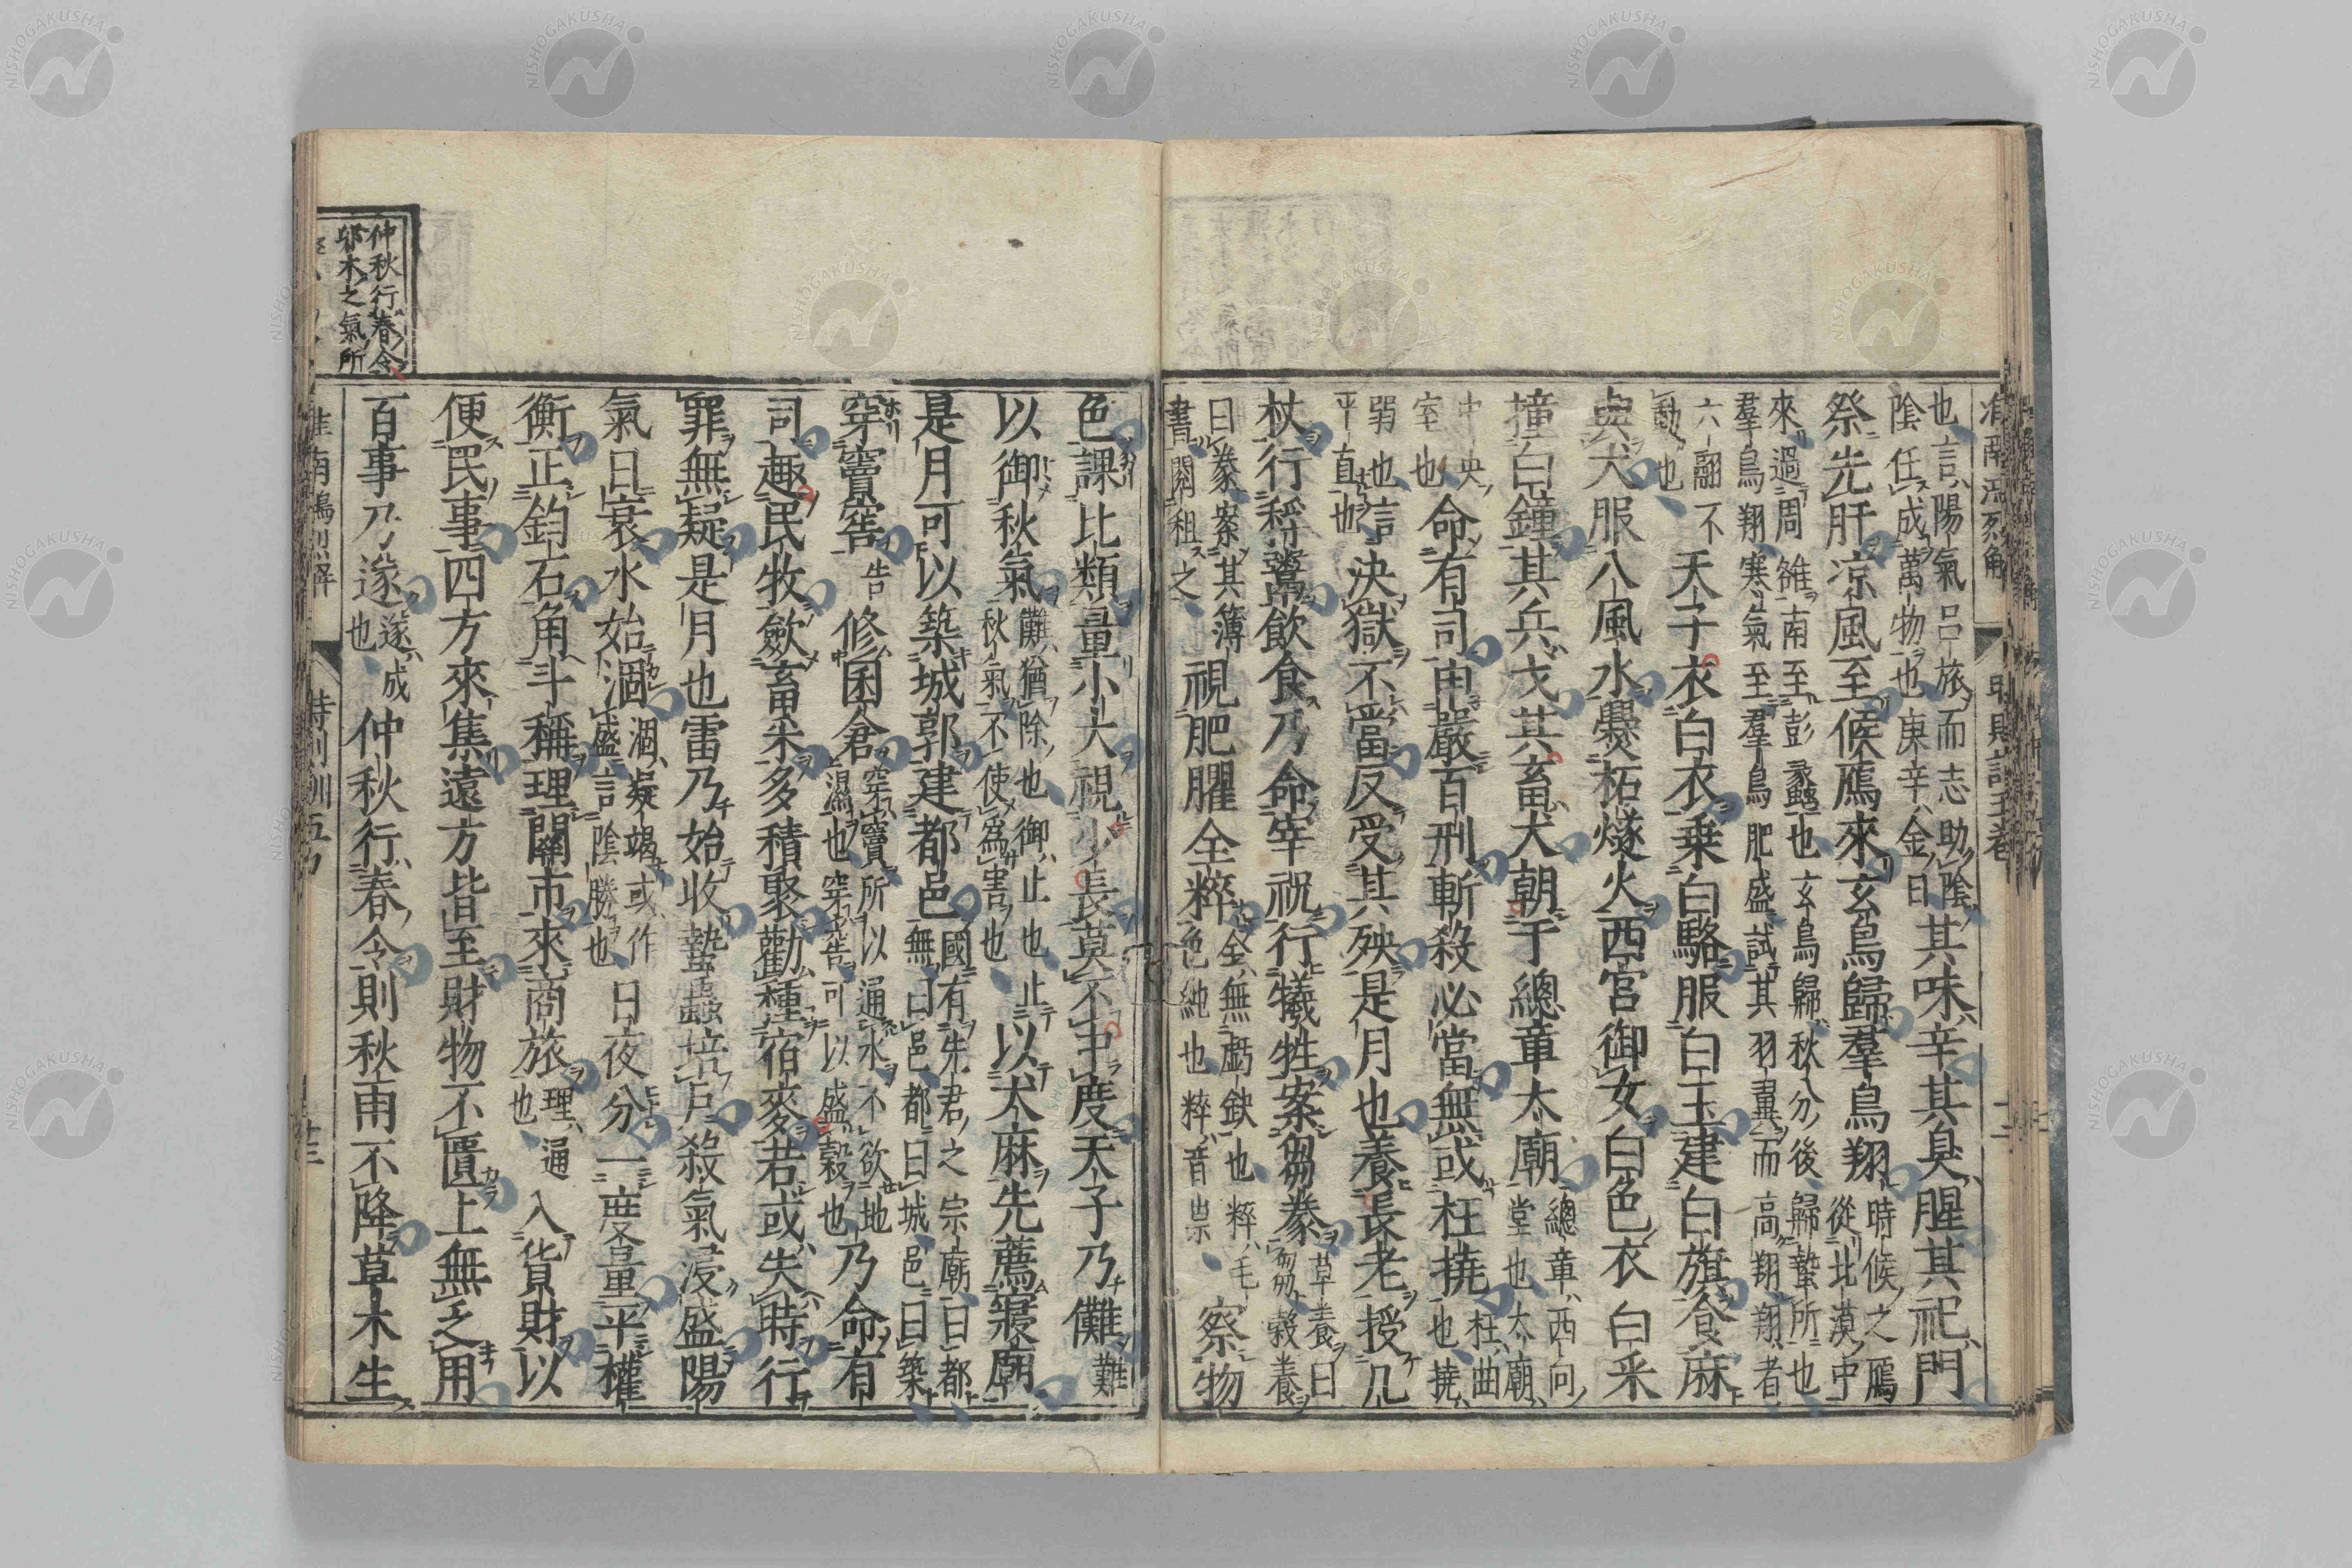 也言陽氣呂旅而志助陰
陰任成萬物也庚辛金日
其味辛其臭腥其祀門
祭先肝涼風至候鴈來玄鳥歸羣鳥翔
時候之鴈
從北漠中
來過周雒南至彭蠡也玄鳥歸秋分後歸蟄所也
羣鳥翔寒氣至羣鳥肥盛試其羽翼而高翔翔者
六翮不
動也
天子衣白衣乘白駱服白玉建白旗食麻
與犬服八風水爨柘燧火西宮御女白色衣白采
撞白鐘其兵戈其畜犬朝于總章太廟
總章西向
堂也太廟
中央
室也
命有司申嚴百刑斬殺必當無或枉撓
枉曲
也撓
弱也
平直也
決獄不當反受其殃是月也養長老授几
杖行稃鬻飲食乃命宰祝行犧牲案芻豢
草養曰
芻穀養
曰豢案其簿
書閱租之
視肥臞全粹
全無虧缺也粹毛
色純也粹音祟
察物
色課比類量小大視少長莫不中度天子乃儺
難
以御秋氣
儺猶除也御止也止
秋氣不使為害也
以犬麻先薦寢廟
是月可以築城郭建都邑
國有先君之宗廟曰都
無曰邑都曰城邑曰築
穿竇窖
告
修囷倉
穿竇所以通水不欲地
濕也穿窖可以盛穀也
乃命有
司趣民收歛畜采多積聚勸種宿麥若或失時行
罪無疑是月也雷乃始收蟄蟲培戶殺氣浸盛陽
氣日衰水始涸
涸凝竭或作
盛言陰勝也
日夜分一度量平權
衡正鈞石角斗稱理關市來商旅
理通
也
入貨財以
便民事四方來集遠方皆至財物不匱上無乏用
百事乃遂
遂成
也
仲秋行春令則秋雨不降草木生
仲秋行春令
卯木之氣所
淮南鴻烈解
時則訓五
十三
NISHOGAKUSHA